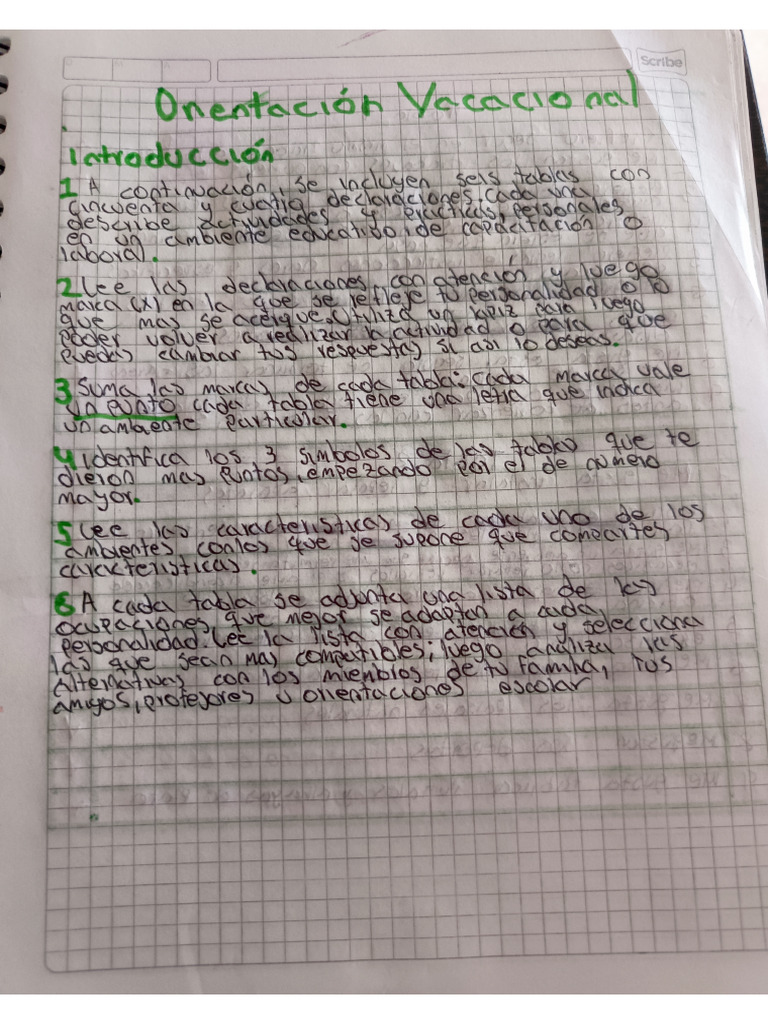 Scribe
Orientación Vacacional
introducción
1 A continuación, se incluyen seis tablas con
cincuenta y cuatro declaraciones. cada una
describe actividades y practicas, personales
en un ambiente educativo, de capacitación o
laboral.
2 Lee las declaraciones con atención y luego
marca (x) en la que se refleje tu personalidad o lo
que mas se acerque. Utiliza un lapiz para luego
poder volver a realizar la actividad o para que
puedas cambiar tus respuestas si asi lo deseas.
3 Suma las marcas de cada tabla: cada marca vale
un punto cada tabla tiene una letra que indica
un ambiente particular.
4 identifica los 3 simbolos de las tablas que te
dieron mas puntos, empezando por el de numero
mayor.
5 Lee las caracteristicas de cada uno de los
ambientes, con los que se supone que compartes
caracteristicas.
6 A cada tabla se adjunta una lista de las
ocupaciones que mejor se adaptan a cada
personalidad. Lee la lista con atención y selecciona
las que sean mas compatibles; luego analiza las
alternativas con los miembros de tu familia, tus
amigos, profesores u orientaciones escolar